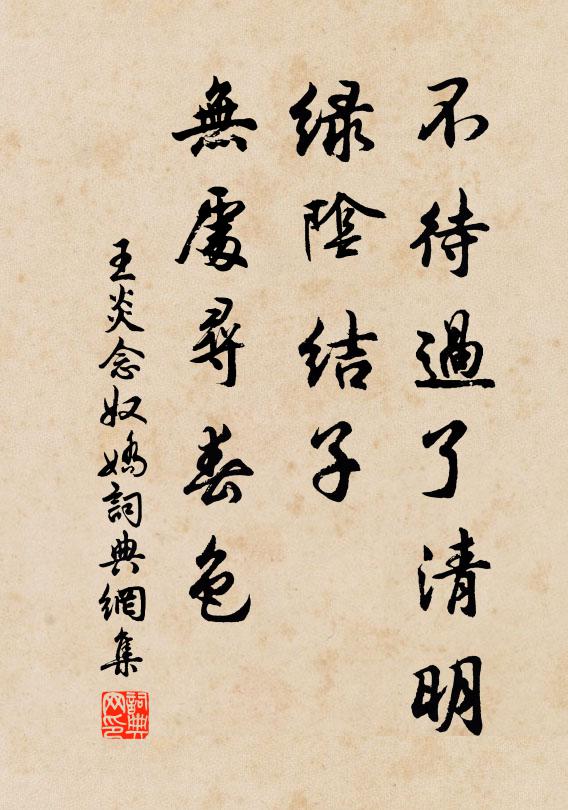 不待過了清明
綠陰結子
無處尋春色
王炎念奴嬌詞典網集
詞典网印